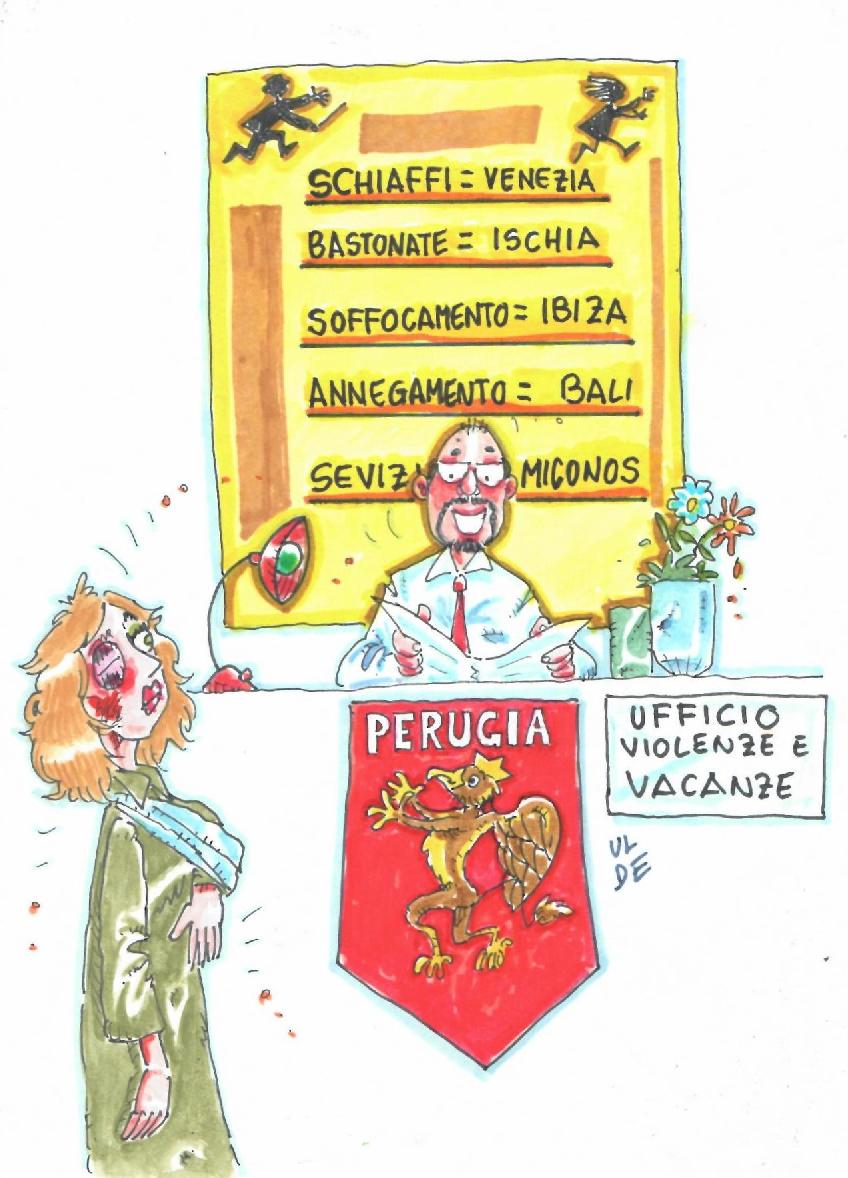 SCHIAFFI = VENEZIA
BASTONATE = ISCHIA
SOFFOCAMENTO = IBIZA
ANNEGAMENTO = BALI
SEVIZI MICONOS
PERUGIA
UFFICIO
VIOLENZE E
VACANZE
UL
DE